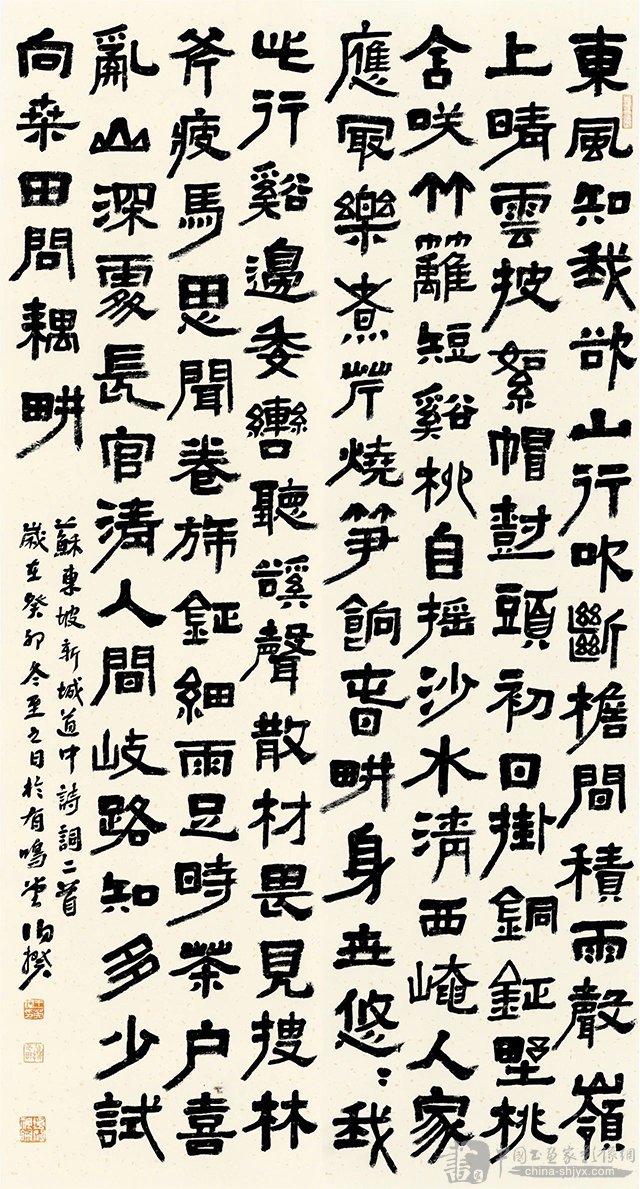 東風知我欲山行吹斷檐間積雨聲嶺
上晴雲披絮帽尌頭初日掛銅鉦墅桃
含咲竹籬短谿柳自摇沙水清西崦人家
應冣樂煮芹燒笋餉春畊身世悠〻我
此行谿邊委轡聽谿聲散材畏見搜林
斧疲馬思聞卷旆鉦細雨足時茶户喜
亂山深處長官清人間岐路知多少試
向桑田問耦畊
蘇東坡新城道中詩詞二首
歲在癸卯冬至之日於有鳴堂
中國書畫家影像網
china-shjyx.com